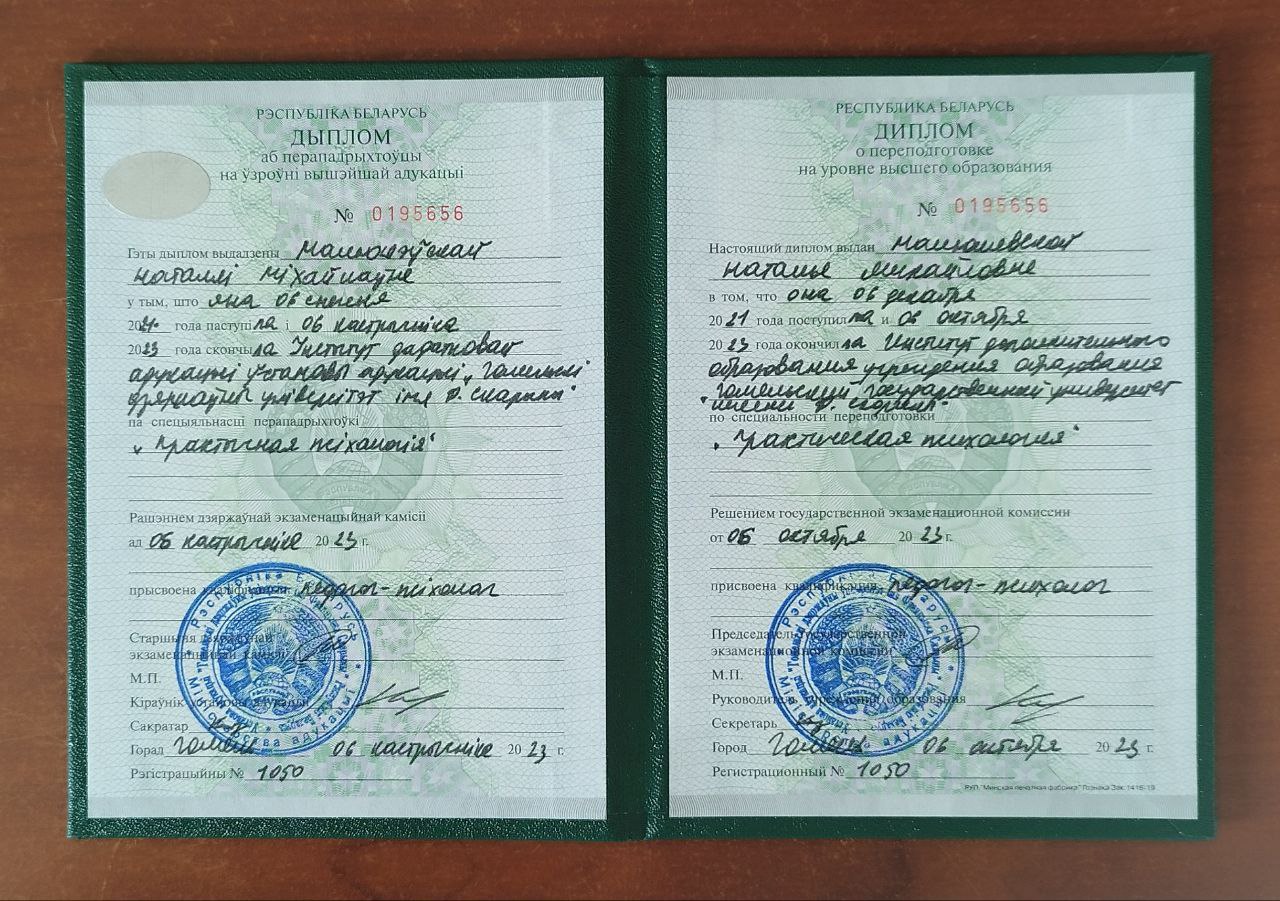 РЭСПУБЛІКА БЕЛАРУСЬ
ДЫПЛОМ
аб перападрыхтоўцы
на ўзроўні вышэйшай адукацыі
№ 0195656
Гэты дыплом выдадзены
Наталлі Міхайлаўне
у тым, што яна 06 снежня
2021 года паступіла і 06 кастрычніка
2023 года скончыла Інстытут дадатковай
адукацыі ўстановы адукацыі „Гомельскі
дзяржаўны універсітэт імя Ф. Скарыны"
па спецыяльнасці перападрыхтоўкі
„Практычная псіхалогія"
Рашэннем дзяржаўнай экзаменацыйнай камісіі
ад 06 кастрычніка 2023 г.
прысвоена кваліфікацыя педагог-псіхолаг
Старшыня дзяржаўнай
экзаменацыйнай камісіі
М.П.
Кіраўнік установы адукацыі
Сакратар
Горад Гомель 06 кастрычніка 2023 г.
Рэгістрацыйны № 1050
РЕСПУБЛИКА БЕЛАРУСЬ
ДИПЛОМ
о переподготовке
на уровне высшего образования
№ 0195656
Настоящий диплом выдан
Наталье Михайловне
в том, что она 06 декабря
2021 года поступила и 06 октября
2023 года окончила Институт дополнительного
образования учреждения образования
„Гомельский государственный университет
имени Ф. Скорины"
по специальности переподготовки
„Практическая психология"
Решением государственной экзаменационной комиссии
от 06 октября 2023 г.
присвоена квалификация педагог-психолог
Председатель государственной
экзаменационной комиссии
М.П.
Руководитель учреждения образования
Секретарь
Город Гомель 06 октября 2023 г.
Регистрационный № 1050
РУП "Минская печатная фабрика" Гознака Зак. 1416-19